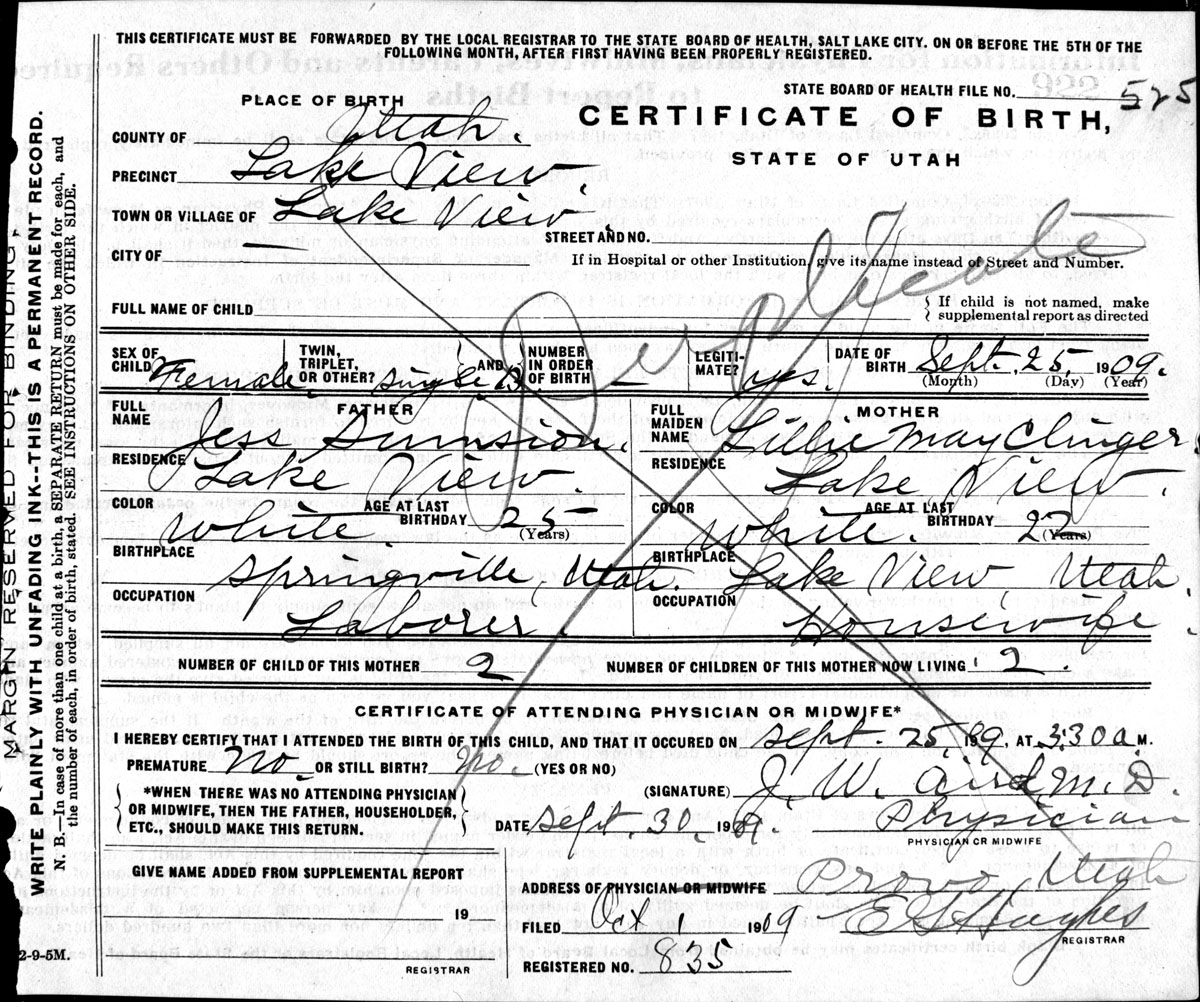 THIS CERTIFICATE MUST BE FORWARDED BY THE LOCAL REGISTRAR TO THE STATE BOARD OF HEALTH, SALT LAKE CITY. ON OR BEFORE THE 5TH OF THE
FOLLOWING MONTH, AFTER FIRST HAVING BEEN PROPERLY REGISTERED.
STATE BOARD OF HEALTH FILE NO. 525
PLACE OF BIRTH
CERTIFICATE OF BIRTH,
STATE OF UTAH
COUNTY OF Utah.
PRECINCT Lake View.
TOWN OR VILLAGE OF Lake View.
STREET AND NO.
CITY OF
If in Hospital or other Institution, give its name instead of Street and Number.
Duplicate
FULL NAME OF CHILD
{ If child is not named, make
supplemental report as directed
SEX OF CHILD Female. TWIN, TRIPLET, OR OTHER? single { AND } NUMBER IN ORDER OF BIRTH – LEGITI-MATE? yes. DATE OF BIRTH Sept. 25, 1909.
(Month) (Day) (Year)
FATHER
FULL NAME Jess Sumsion.
RESIDENCE Lake View.
COLOR White. AGE AT LAST BIRTHDAY 25
(Years)
BIRTHPLACE Springville, Utah.
OCCUPATION Laborer.
MOTHER
FULL MAIDEN NAME Lillie May Clinger
RESIDENCE Lake View.
COLOR White. AGE AT LAST BIRTHDAY 22
(Years)
BIRTHPLACE Lake View, Utah
OCCUPATION Housewife.
NUMBER OF CHILD OF THIS MOTHER 2 NUMBER OF CHILDREN OF THIS MOTHER NOW LIVING 2.
CERTIFICATE OF ATTENDING PHYSICIAN OR MIDWIFE*
I HEREBY CERTIFY THAT I ATTENDED THE BIRTH OF THIS CHILD, AND THAT IT OCCURED ON Sept. 25, 1909, AT 3:30 a. M.
PREMATURE No. OR STILL BIRTH? no. (YES OR NO)
(SIGNATURE) J. W. Aird, M. D.
{ *WHEN THERE WAS NO ATTENDING PHYSICIAN
OR MIDWIFE, THEN THE FATHER, HOUSEHOLDER,
ETC., SHOULD MAKE THIS RETURN. }
DATE Sept. 30, 1909. Physician
PHYSICIAN OR MIDWIFE
GIVE NAME ADDED FROM SUPPLEMENTAL REPORT
19
REGISTRAR
ADDRESS OF PHYSICIAN OR MIDWIFE Provo, Utah
FILED Oct 1 1909
REGISTRAR
REGISTERED NO. 835
2-9-5M.
MARGIN RESERVED FOR BINDING,
WRITE PLAINLY WITH UNFADING INK--THIS IS A PERMANENT RECORD.
N. B.—In case of more than one child at a birth, a SEPARATE RETURN must be made for each, and
the number of each, in order of birth, stated. SEE INSTRUCTIONS ON OTHER SIDE.